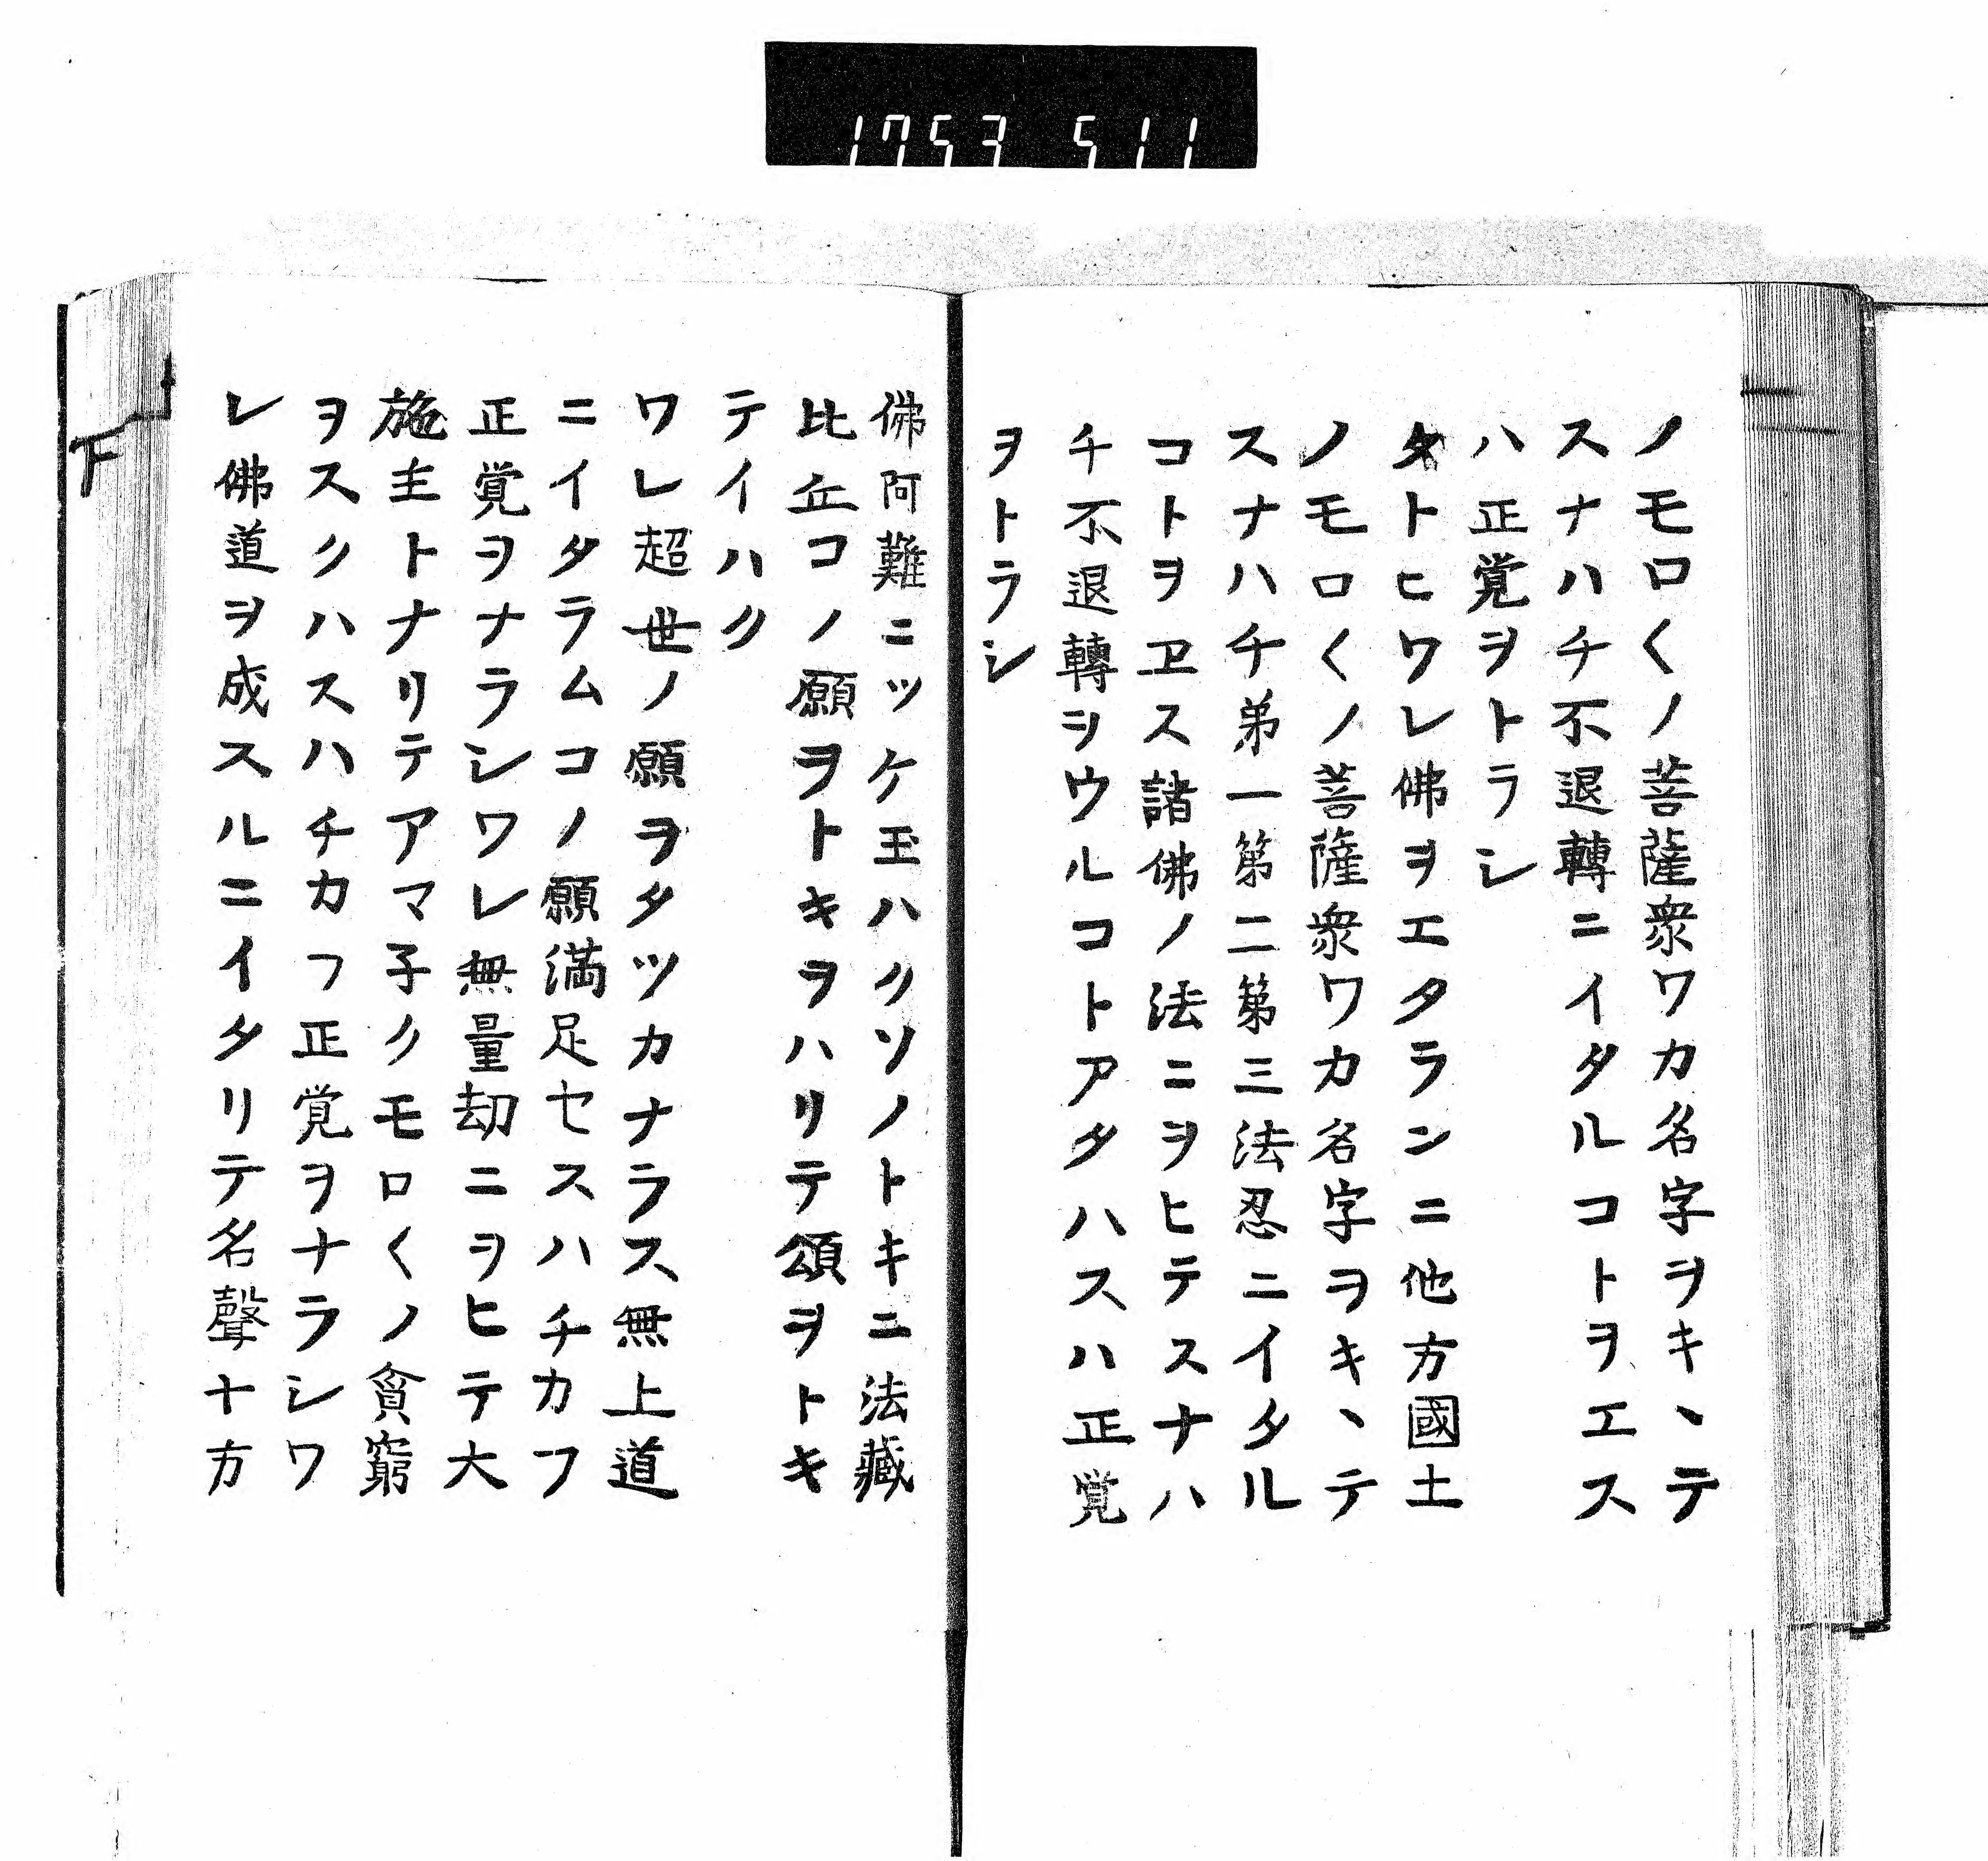 1753 511
ノモロ〱ノ菩薩衆ワカ名字ヲキヽテ
スナハチ不退轉ニイタルコトヲエス
ハ正覚ヲトラシ
タトヒワレ佛ヲエタランニ他方國土
ノモロ〱ノ菩薩衆ワカ名字ヲキヽテ
スナハチ弟一第二第三法忍ニイタル
コトヲヱス諸佛ノ法ニヲヒテスナハ
チ不退轉ヲウルコトアタハスハ正覚
ヲトラシ
佛阿難ニツケ玉ハクソノトキニ法藏
比丘コノ願ヲトキヲハリテ頌ヲトキ
テイハク
ワレ超世ノ願ヲタツカナラス無上道
ニイタラムコノ願満足セスハチカフ
正覚ヲナラシワレ無量劫ニヲヒテ大
施主トナリテアマ子クモロ〱ノ貧窮
ヲスクハスハチカフ正覚ヲナラシワ
レ佛道ヲ成スルニイタリテ名聲十方
下